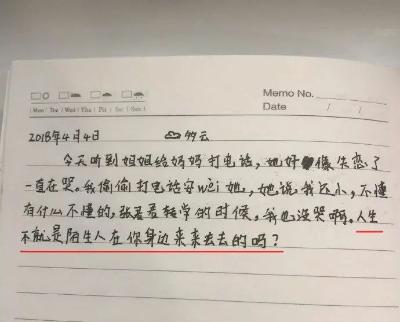 Memo No.
Mon Tue Wed Thu Fri Sat Sun
Date / /
2018年4月4日 多云
今天听到姐姐给妈妈打电话，她好像失恋了
一直在哭。我偷偷打电话安wèi她，她说我还小，不懂
有什么不懂的，张若若转学的时候，我也没哭啊。人生
不就是陌生人在你身边来来去去的吗？